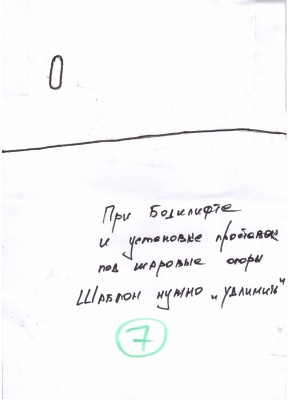 При Бодилифте
и установке проставок
под шаровые опоры
Шаблон нужно „удлинить"
7